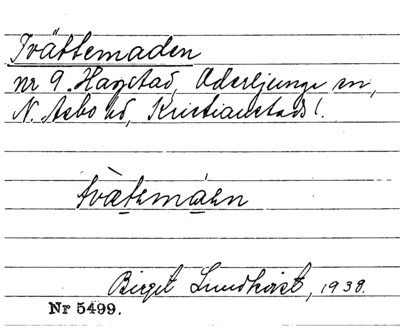 Tvättemaden
nr 9 Hagstad, Oderljunga sn,
N. Åsbo hd, Kristianstads l.
tvǽtemáen
Birgit Lundkvist, 1938.
Nr 5499.